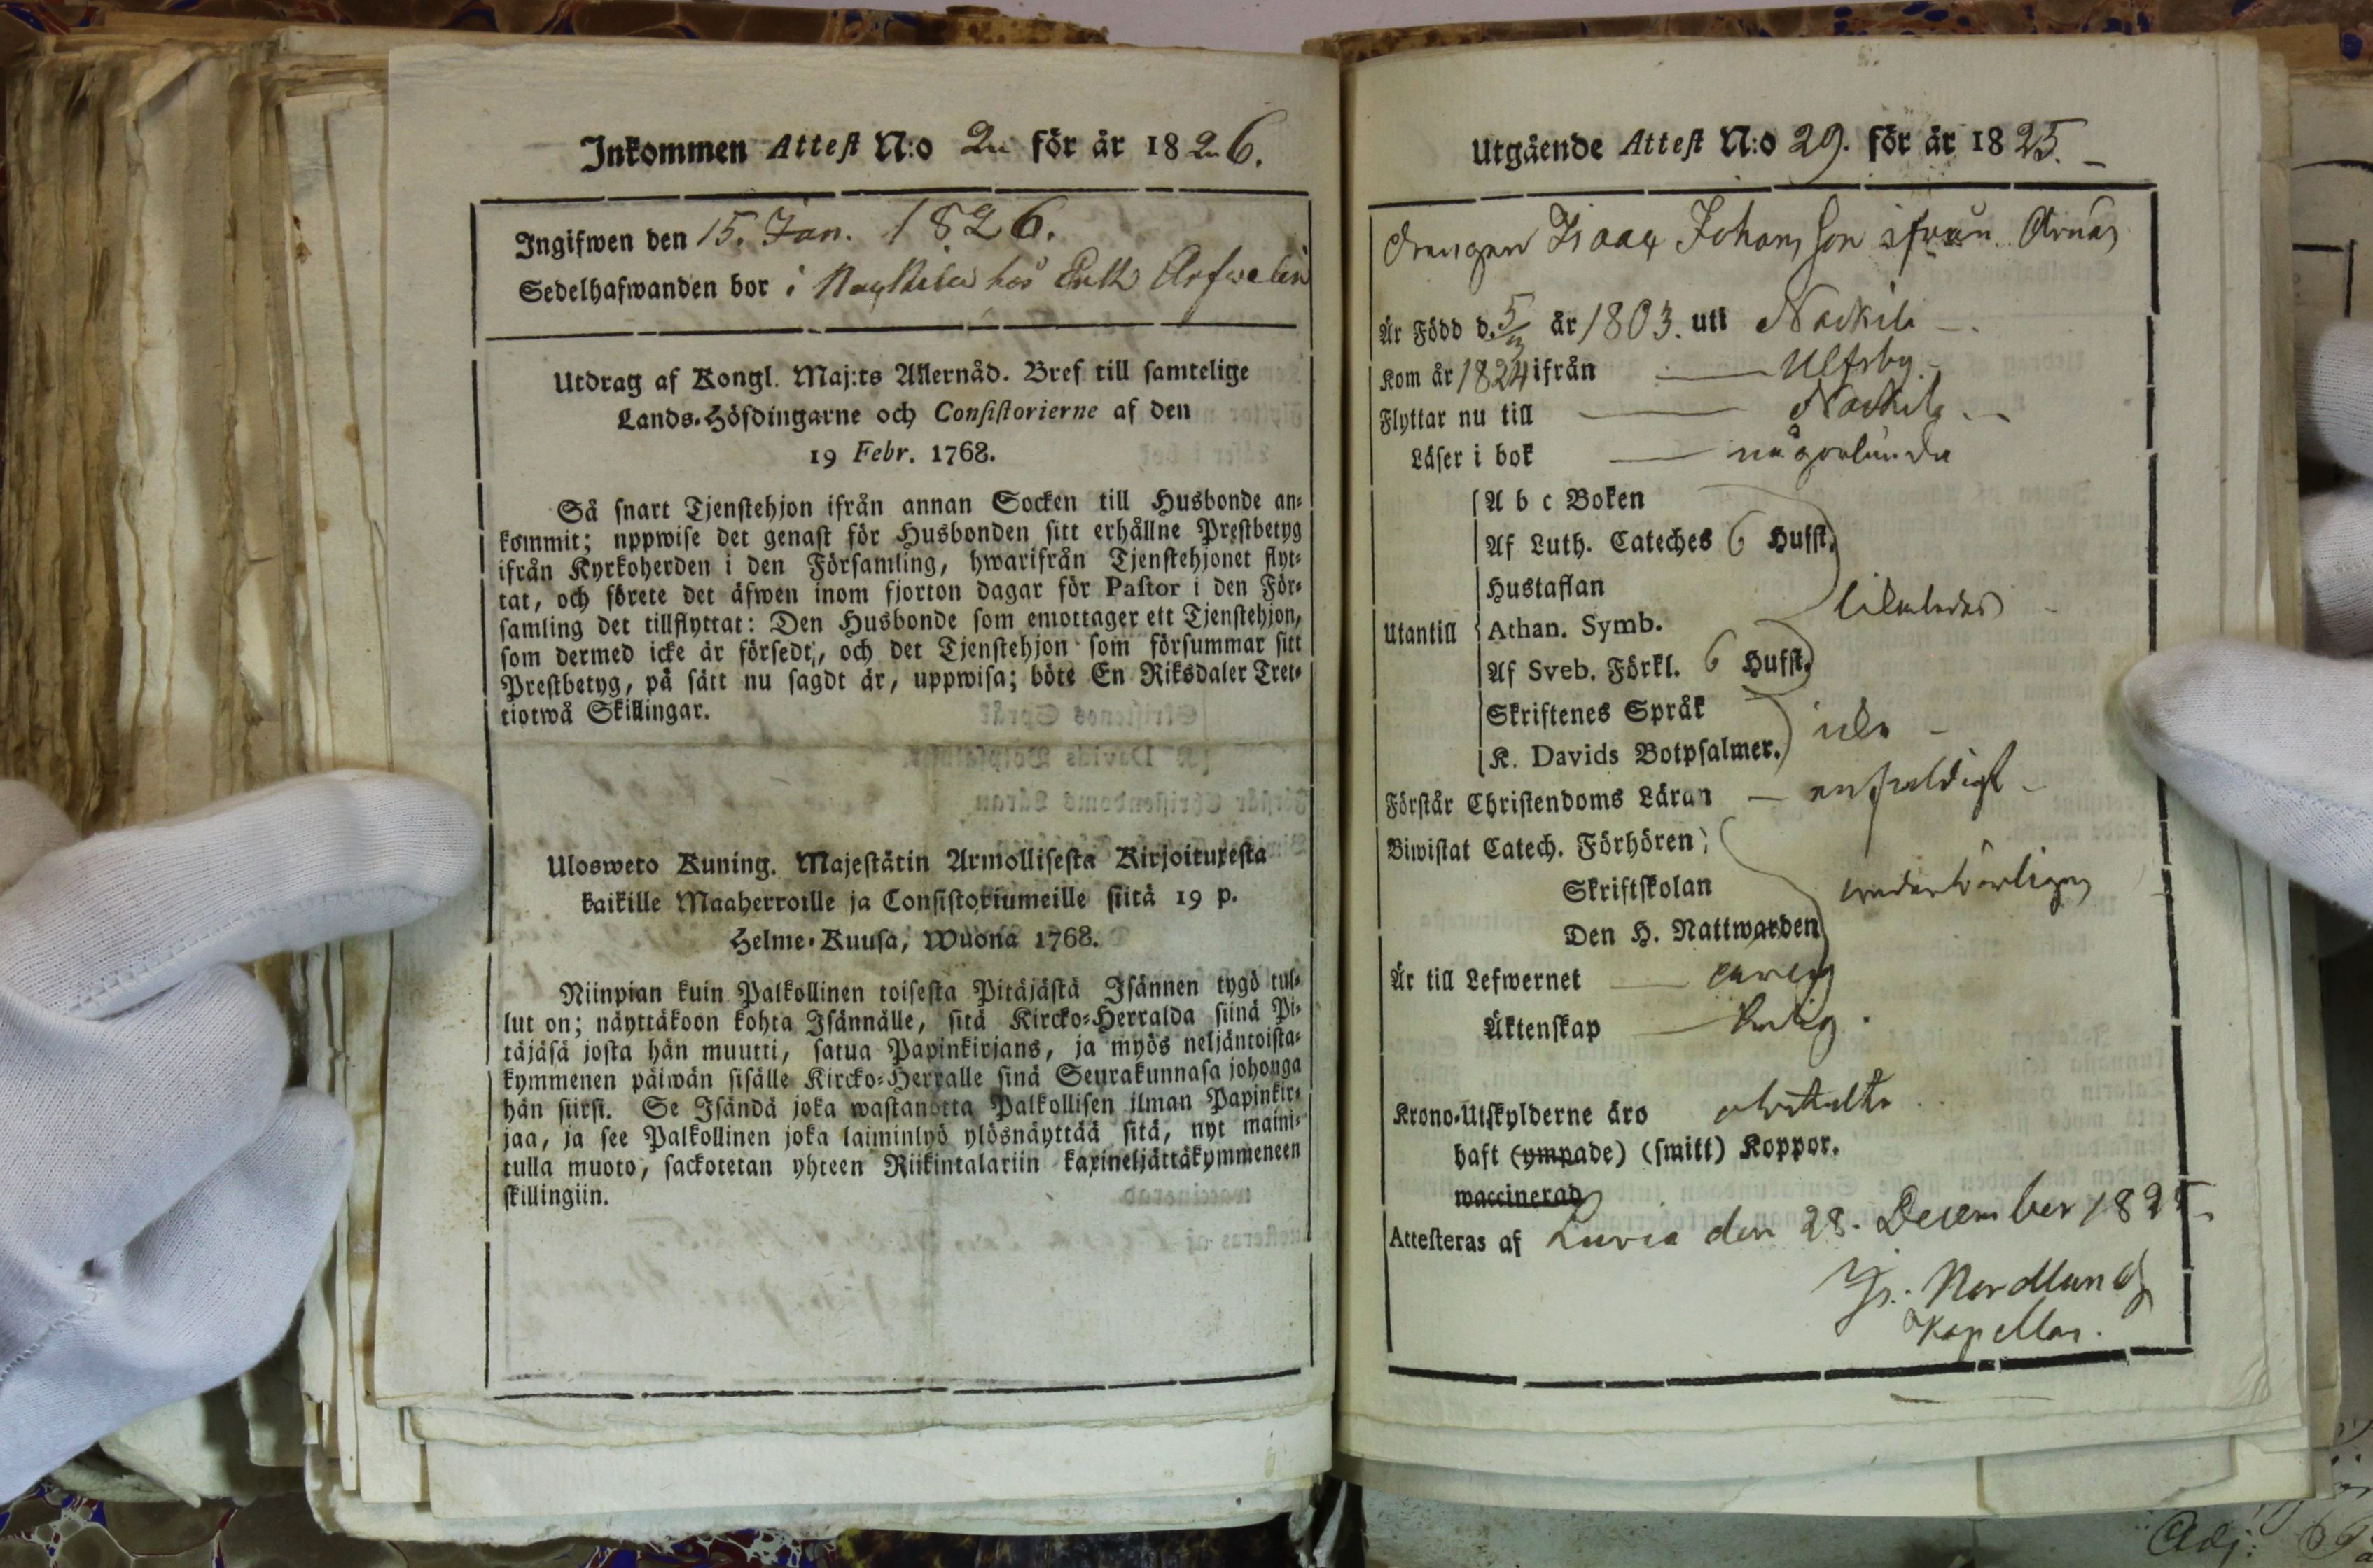 Inkommen Attest N:o 2 för år 1826.
Ingifwen den 15. Jan. 1826.
Sedelhafwanden bor i hos Erik Arfwelin
Utdrag af Kongl. Maj:ts Allernåd. Bref till samtelige
Lands-Höfdingarne och Consistorierne af den
19 Febr. 1768.
Så snart Tjenstehjon ifrån annan Socken till Husbonde an-
kommit; nppwise det genast för Husbonden sitt erhållne Prestbetyg
ifrån Kyrkoherden i den Församling, hwarifrån Tjenstehjonet flyt-
tat, och förete det äfwen inom fjorton dagar för Pastor i den För-
samling det tillflyttat: Den Husbonde som emottager ett Tjenstehjon,
som dermed icke är försedt, och det Tjenstehjon som försummar sitt
Prestbetyg, på sätt nu sagdt är, uppwisa; böte En Riksdaler Tret-
tiotwå Skillingar.
Ulosweto Kuning. Majestätin Armollisesta Kirjoituxesta
kaikille Maaherroille ja Consistoriumeille siitä 19 p.
Helme-Kuusa, Wuona 1768.
Niinpian kuin Palkollinen toisesta Pitäjästä Isännen tygö tul-
lut on; näyttäkoon kohta Isännälle, sitä Kircko-Herralda siinä Pi-
täjäsä josta hän muutti, satua Papinkirjans, ja myös neljäntoista-
kymmenen päiwän sisälle Kircko-Herralle sinä Seurakunnasa johonga
hän siirsi. Se Isändä joka wastanotta Palkollisen ilman Papinkir-
jaa, ja see Palkollinen joka laiminlyö ylösnäyttää sitä, nyt maini-
tulla muoto, sackotetan yhteen Riikintalariin kaxineljättäkymmeneen
skillingiin.
Utgående Attest N:o 29. för år 1825.
Drengen Isaac Johansson ifrån Arnäs
Är Född d. 5/3 år 1803. uti Nackila
Kom år 1824 ifrån Ulfsby
Flyttar nu till Nackila
Läser i bok någorlunda
A b c Boken
Af Luth. Cateches 6 Hufst.
Hustaflan
Utantill Athan. Symb. likaledes
Af Sveb. Förkl. 6 Hufst.
Skriftenes Språk
K. Davids Botpsalmer. icke
Förstår Christendoms Läran enfaldigt
Biwistat Catech. Förhören
Skriftskolan wederbörligen
Den H. Nattwarden
Är till Lefwernet
Äktenskap ledig.
Krono-Utskylderne äro
haft (ympade) (smitt) Koppor.
waccinerad
Attesteras af Luvia den 28. December 1825
Is. Nordlund
Kapellan.
Adj: